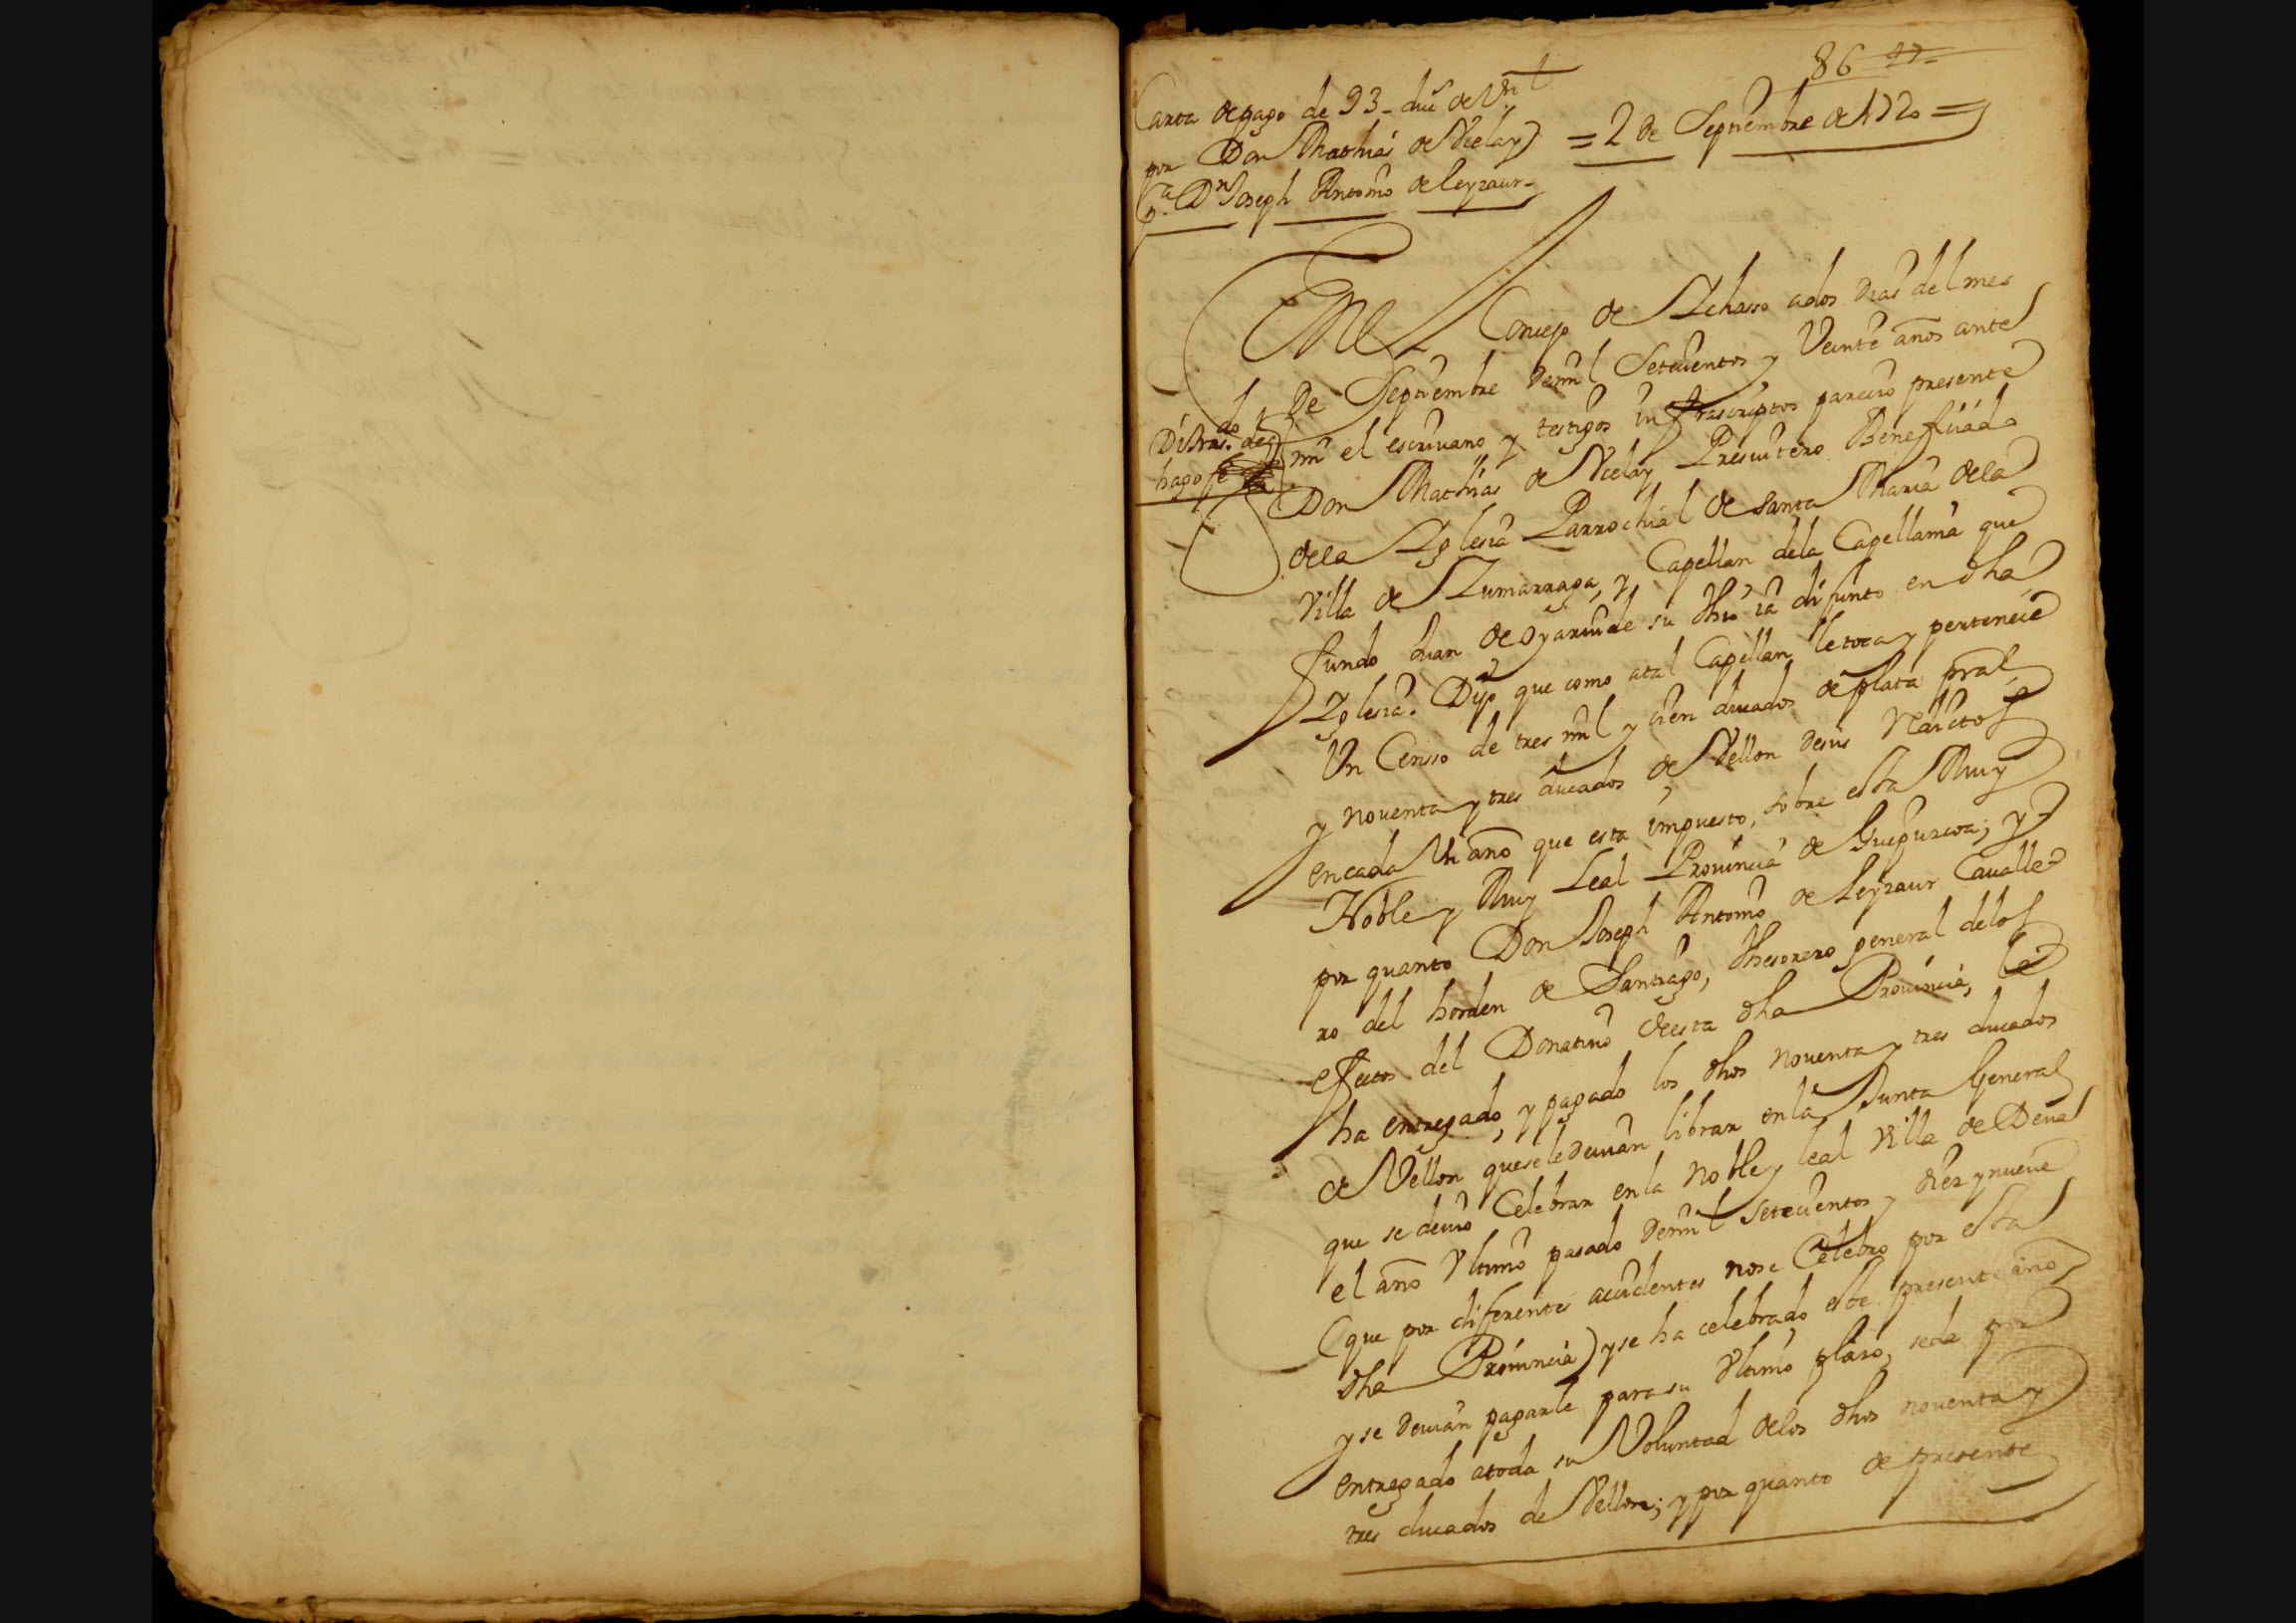 86
Carta de pago de 93 duc.s de V.n
por Don Mathias de Ycelay
p.a D.n Joseph Antonio de Leyzaur
= 2 de Septiembre de 1720 =
En el Concejo de Ichasso a dos dias del mes
de Septiembre de mil Setecientos y Veinte años ante
mi el escriuano y testigos infrascriptos parecio presente
hago fe
Don Mathias de Ycelay Presuitero Beneficiado
de la Yglesia Parrochial de Santa Maria de la
Villa de Zumarraga, y Capellan de la Capellania que
fundo Juan de Oyaruide su thio ia difunto en dha
Yglesia. Dijo que como a tal Capellan le toca y pertenece
Vn Censso de tres mil y cien ducados de plata pral,
y nouenta y tres ducados de Vellon de sus Reditos
en cada Vn año que esta impuesto, sobre esta Muy
Noble y Muy Leal Prouincia de Guipuzcoa; y
por quanto Don Joseph Antonio de Leyzaur Caualle
ro del horden de Santiago, thesorero general de los
efectos del Donatiuo de esta dha Prouincia, le
ha entregado, y pagado los dhos nouenta y tres ducados
de Vellon que se le deuian librar en la Junta General
que se deuio Celebrar en la Noble y leal Villa de Deua
el año Vltimo pasado de mil setecientos y diez y nueue
(que por diferentes accidentes no se Celebro por esta
dha Prouincia) y se ha celebrado este presente año
y se deuian pagarle para su Vltimo plazo, se da por
entregado a toda su Voluntad de los dhos nouenta y
tres ducados de Vellon; y por quanto de presente